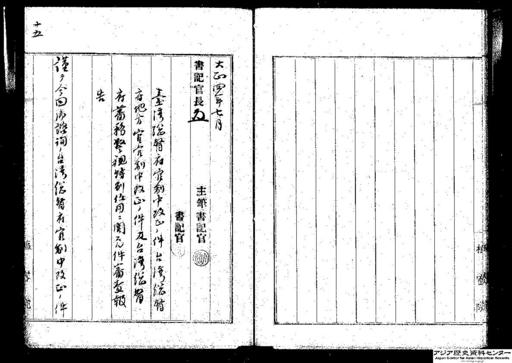 十五
大正四年七月
書記官長
主筆書記官
書記官
台湾総督府官制中改正ノ件台湾総督
府地方官官制中改正ノ件及台湾総督
府蕃務警視特別任用ニ関スル件審査報
告
謹テ今回御諮詢ノ台湾総督府官制中改正ノ件
枢密院
枢密院
アジア歴史資料センター
Japan Center for Asian Historical Records